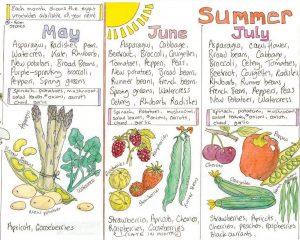 Summer
May
Asparagus, Radishes, peas,
Watercress, Kale, Rhubarb,
New potatoes, Broad Beans,
Purple-sprouting broccoli,
Peppers, Spring greens
Spinach, potatoes, mushrooms,
salad leaves, onions, carrots,
chard, garlic
New potatoes
Apricots, Gooseberries
June
Asparagus, Cabbage,
Beetroot, Broccoli, Courgettes,
Tomatoes, Peppers, Peas,
New potatoes, Broad Beans,
Runner beans, French beans,
Spring greens, Watercress
Celery, Rhubarb, Radishes
Spinach, Potatoes, mushrooms,
salad leaves, onions, carrots,
chard, garlic
Strawberries, Apricots, Cherries,
Raspberries, Gooseberries
July
Asparagus, Cauliflower,
Broad beans, Cabbage,
Broccoli, Celery, Tomatoes,
Beetroot, Courgettes, Radishes
Rhubarb, Runner beans,
French Beans, Peppers, Peas
New Potatoes, Watercress
Spinach, potatoes, mushrooms,
salad leaves, onions, carrots,
chard, garlic
Cherries
Peppers
Strawberries, Apricots,
Cherries, peaches, Raspberries
Blackcurrants